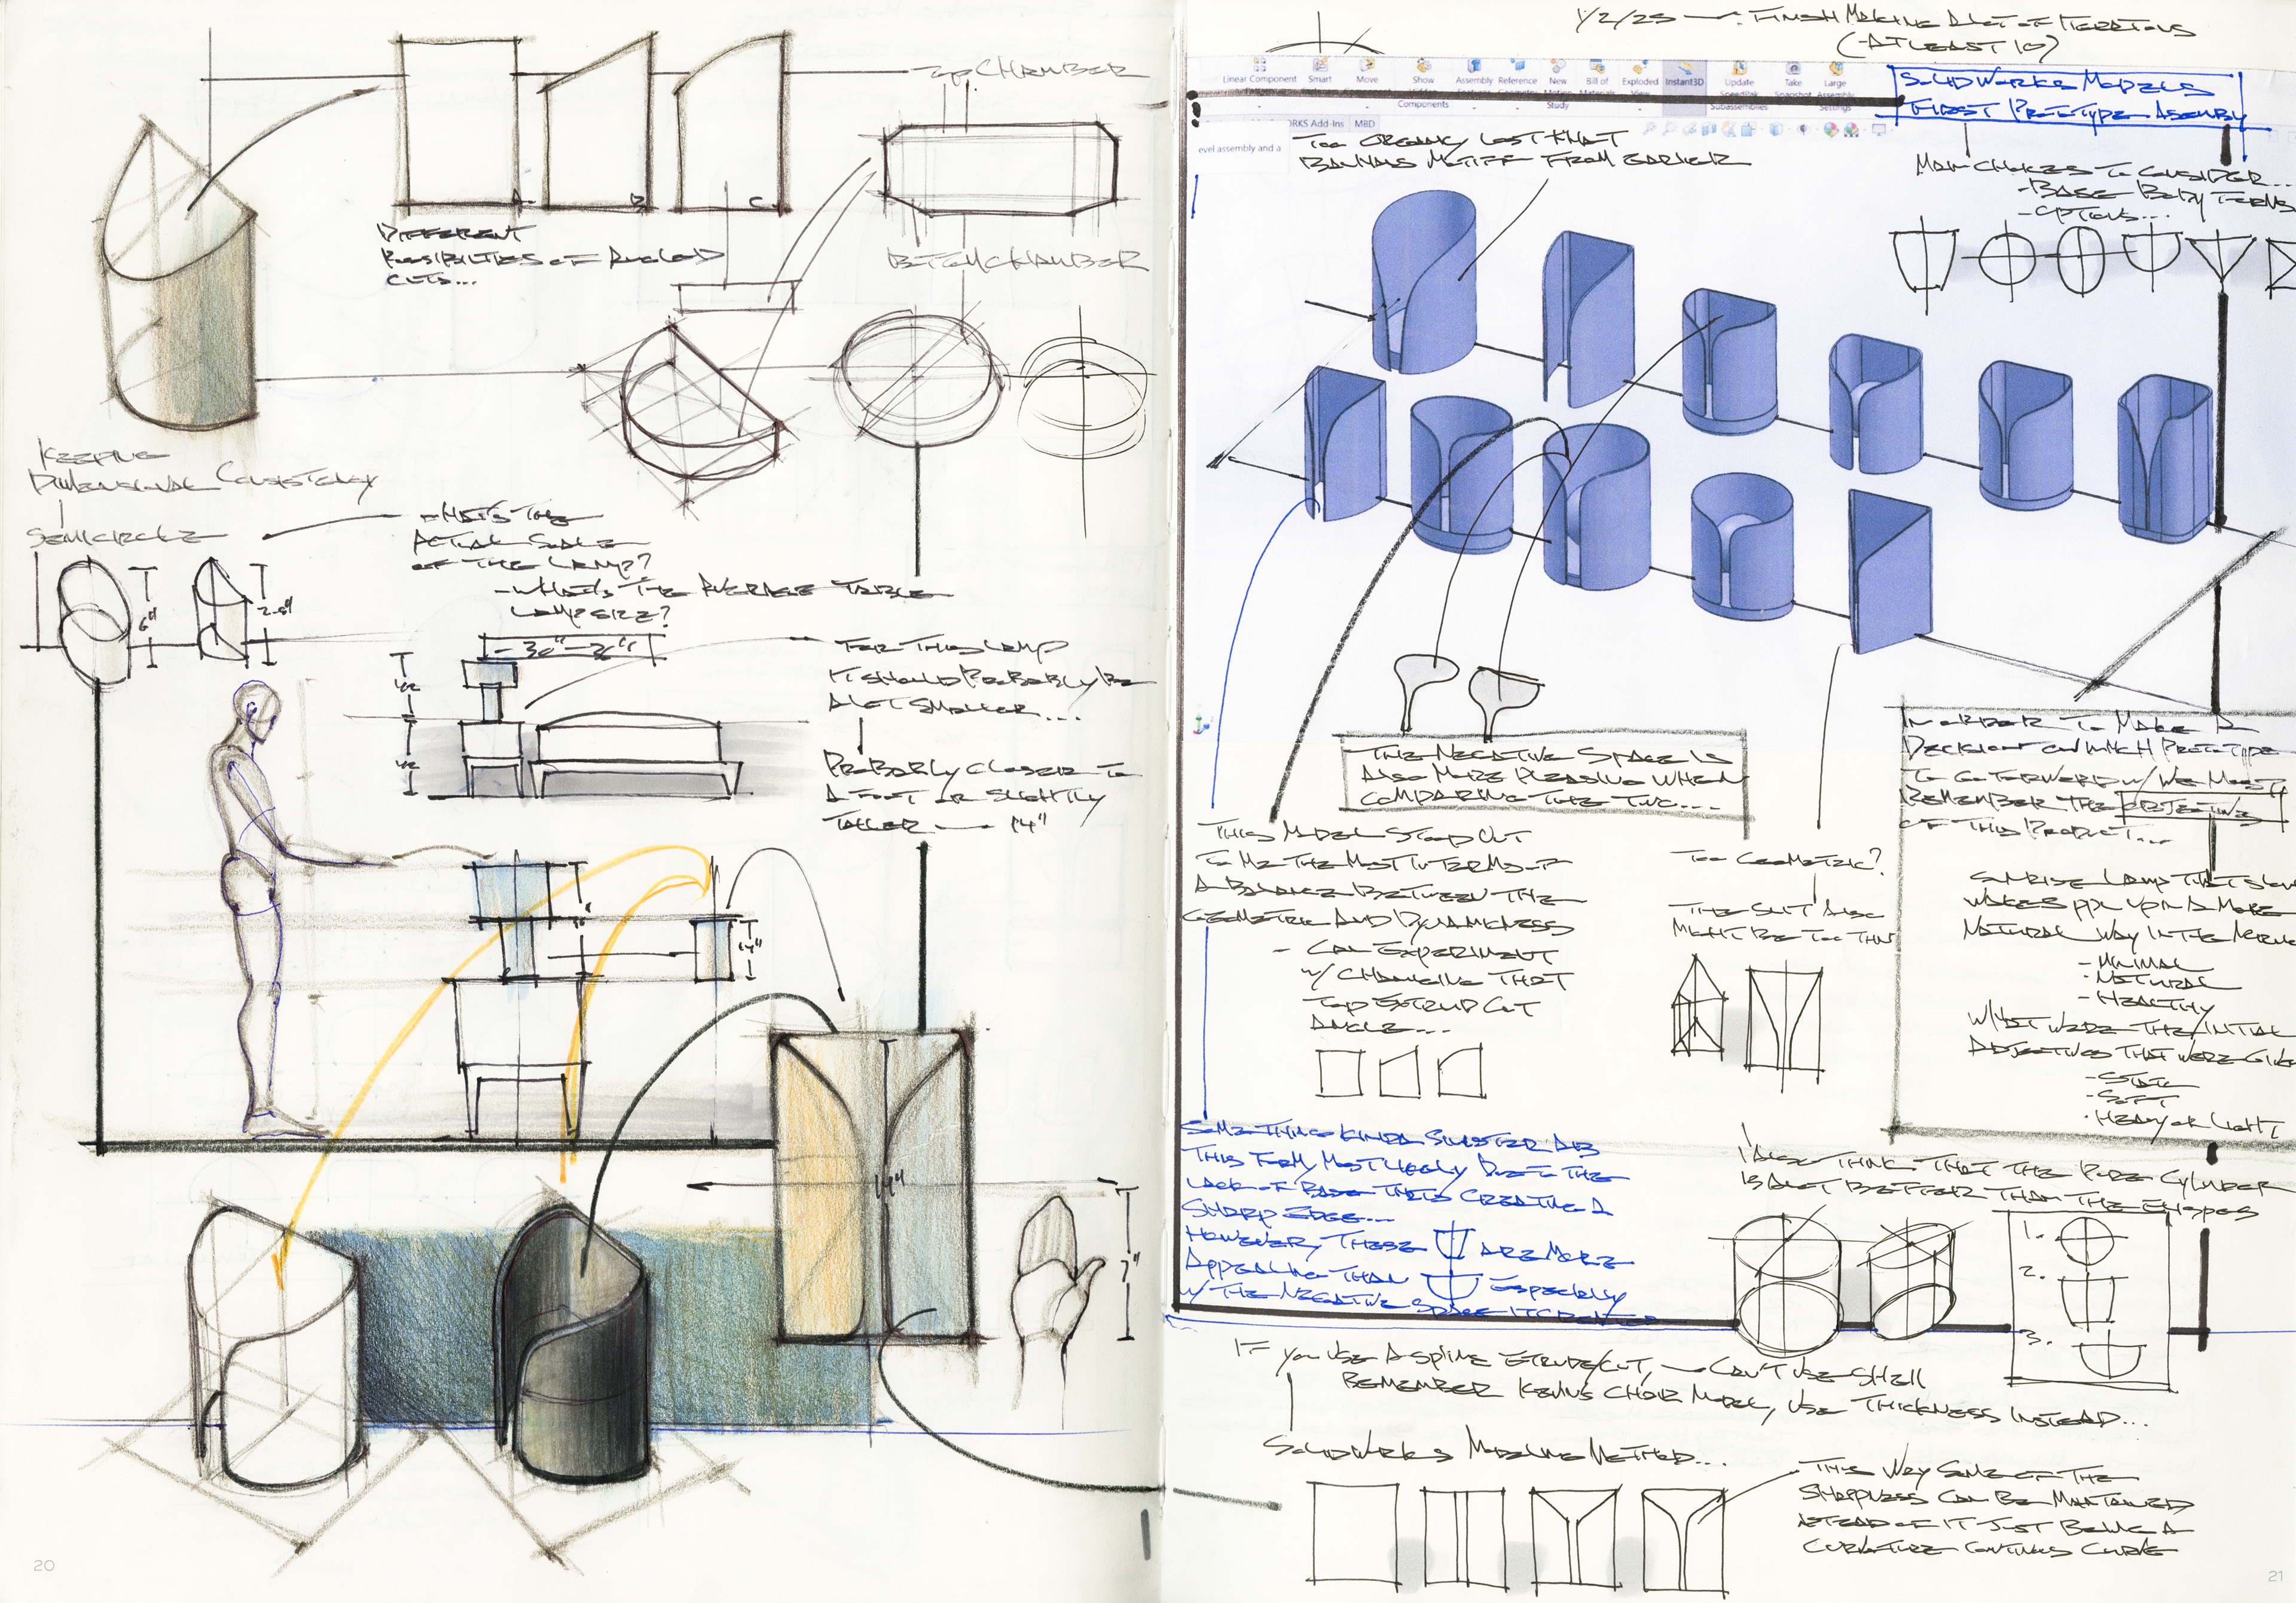 TOP CHAMBER
A.
B
C.
DIFFERENT
POSSIBILITIES OF ANGLED
CUTS...
BOTTOM CHAMBER
KEEPING
DIMENSIONAL CONSISTENCY
SEMICIRCLE
6"
2.5"
- WHAT'S THE
ACTUAL SCALE
OF THE LAMP?
- WHAT'S THE AVERAGE TABLE
LAMP SIZE?
FOR THIS LAMP
IT SHOULD PROBABLY BE
A LOT SMALLER...
PROBABLY CLOSER TO
A FOOT OR SLIGHTLY
TALLER — 14"
14"
14"
7"
20
1/2/25 — FINISH MAKING A LOT OF ITERATIONS
(-AT LEAST 10)
Linear Component
Smart
Move
Show
Components
Assembly
Reference
New
Study
Bill of
Exploded
View
Instant3D
Update
SpeedPak
Subassemblies
Take
Snapshot
Large
Assembly
Settings
SOLIDWORKS MODELS
FIRST PROTOTYPE ASSEMBLY
ORKS Add-Ins
MBD
evel assembly and a
TOO ORGANIC, LOST THAT
BAUHAUS MOTIFF FROM EARLIER
MAIN CHOICES TO CONSIDER...
- BASE BODY FORMS
- OPTIONS...
THE NEGATIVE SPACE IS
ALSO MORE PLEASING WHEN
COMPARING THE TWO...
THIS MODEL STOOD OUT
TO ME THE MOST IN TERMS OF
A BALANCE BETWEEN THE
GEOMETRIC AND DYNAMICNESS
- CAN EXPERIMENT
W/ CHANGING THAT
TOP EXTRUD CUT
ANGLE...
TOO GEOMETRIC?
THE SLIT ALSO
MIGHT BE TOO THIN
IN ORDER TO MAKE A
DECISION ON WHICH PROTOTYPE
TO GO FORWARD W/ WE MUST
REMEMBER THE OBJECTIVE
OF THIS PRODUCT...
SUNRISE LAMP THAT SLOW
WAKES PPL UP IN A MORE
NATURAL WAY IN THE MORNING
- MINIMAL
- NATURAL
- HEALTHY
WHAT WERE THE INITIAL
ADJECTIVES THAT WERE GIVE
- STATIC
- SOFT
- HEAVY OR LIGHT
SOMETHING KINDA SINISTER AB
THIS FORM, MOST LIKELY DUE TO THE
LACK OF BASE THUS CREATING A
SHARP EDGE...
HOWEVER, THESE ARE MORE
APPEALING THAN ESPECIALLY
W/ THE NEGATIVE SPACE
I ALSO THINK THAT THE PURE CYLINDER
IS A LOT BETTER THAN THE ELLIPSES
1.
2.
3.
IF YOU USE A SPLINE EXTRUDE/CUT, — CAN'T USE SHELL
REMEMBER KEVIN'S CHAIR MODEL, USE THICKNESS INSTEAD...
SOLIDWORKS MODELING METHOD...
THIS WAY SOME OF THE
SHARPNESS CAN BE MAINTAINED
INSTEAD OF IT JUST BEING A
CURVATURE CONTINUOUS CURVE
21